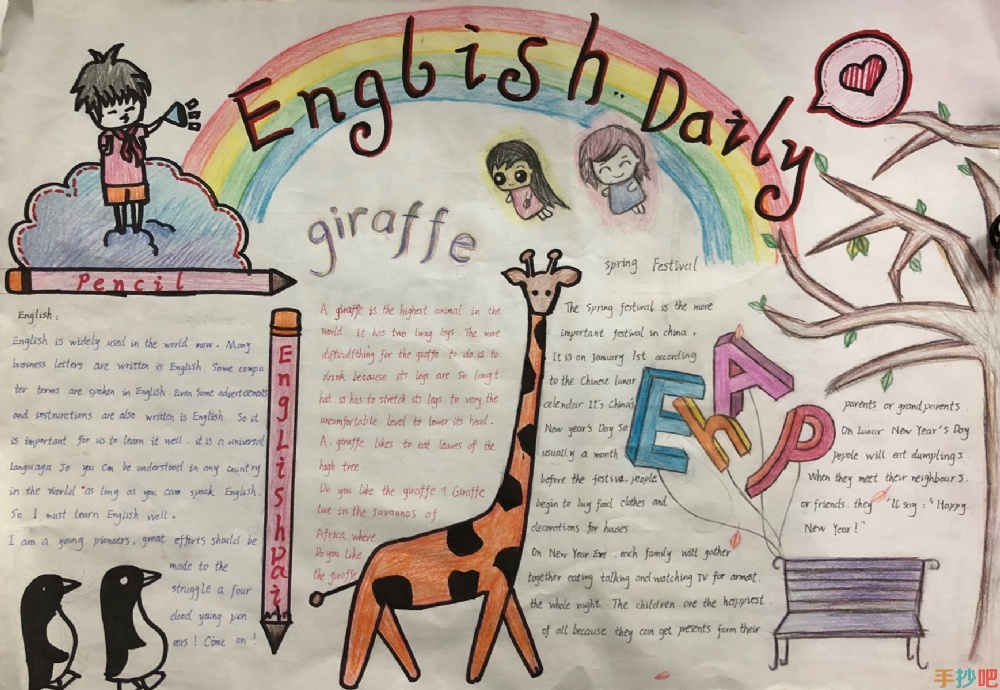 English Daily
Pencil
giraffe
English:
English is widely used in the world now. Many
business letters are written is English Some compu
ter terms are spoken in English. Even Some advertisements
and instructions are also written is English. So it
is important for us to learn it well. it is a universal
Language so you can be understood in any country
in the world as long as you can speak English.
So I must learn English well.
I am a young pioneers, great efforts should be
made to the
struggle a four
cloed young pion
eers! Come on!
EngLishpai
A giraffe is the highest animal in the
world. It has two long legs The more
difficultthing for the giraffe to do is to
drink because its legs are so longt
hat is has to stretch its legs to very the
uncomfortable level to lower its head.
A. giraffe likes to eat leaves of the
high tree
Do you like the giraffe? Giraffe
live in the savannas of
Africa where
Do you like
the giraffe
spring Festival
The spring festival is the more
important festival in china.
It is on January 1st according
to the Chinese lunar
celendar It's China's
New year's Day So
usually a month
before the festive, people
begin to buy food clothes and
decorations for houses
On New Year Eve. each family will gather
together eating talking and watching TV for armost.
the whole night. The children are the happiest
of all because they can get presents form their
EhAP
parents or grandparents.
On Lunar New Year's Day
people will eat dumplings
When they meet their neighbours.
or friends. they "ll say: "Happy
New Year!"
手抄吧